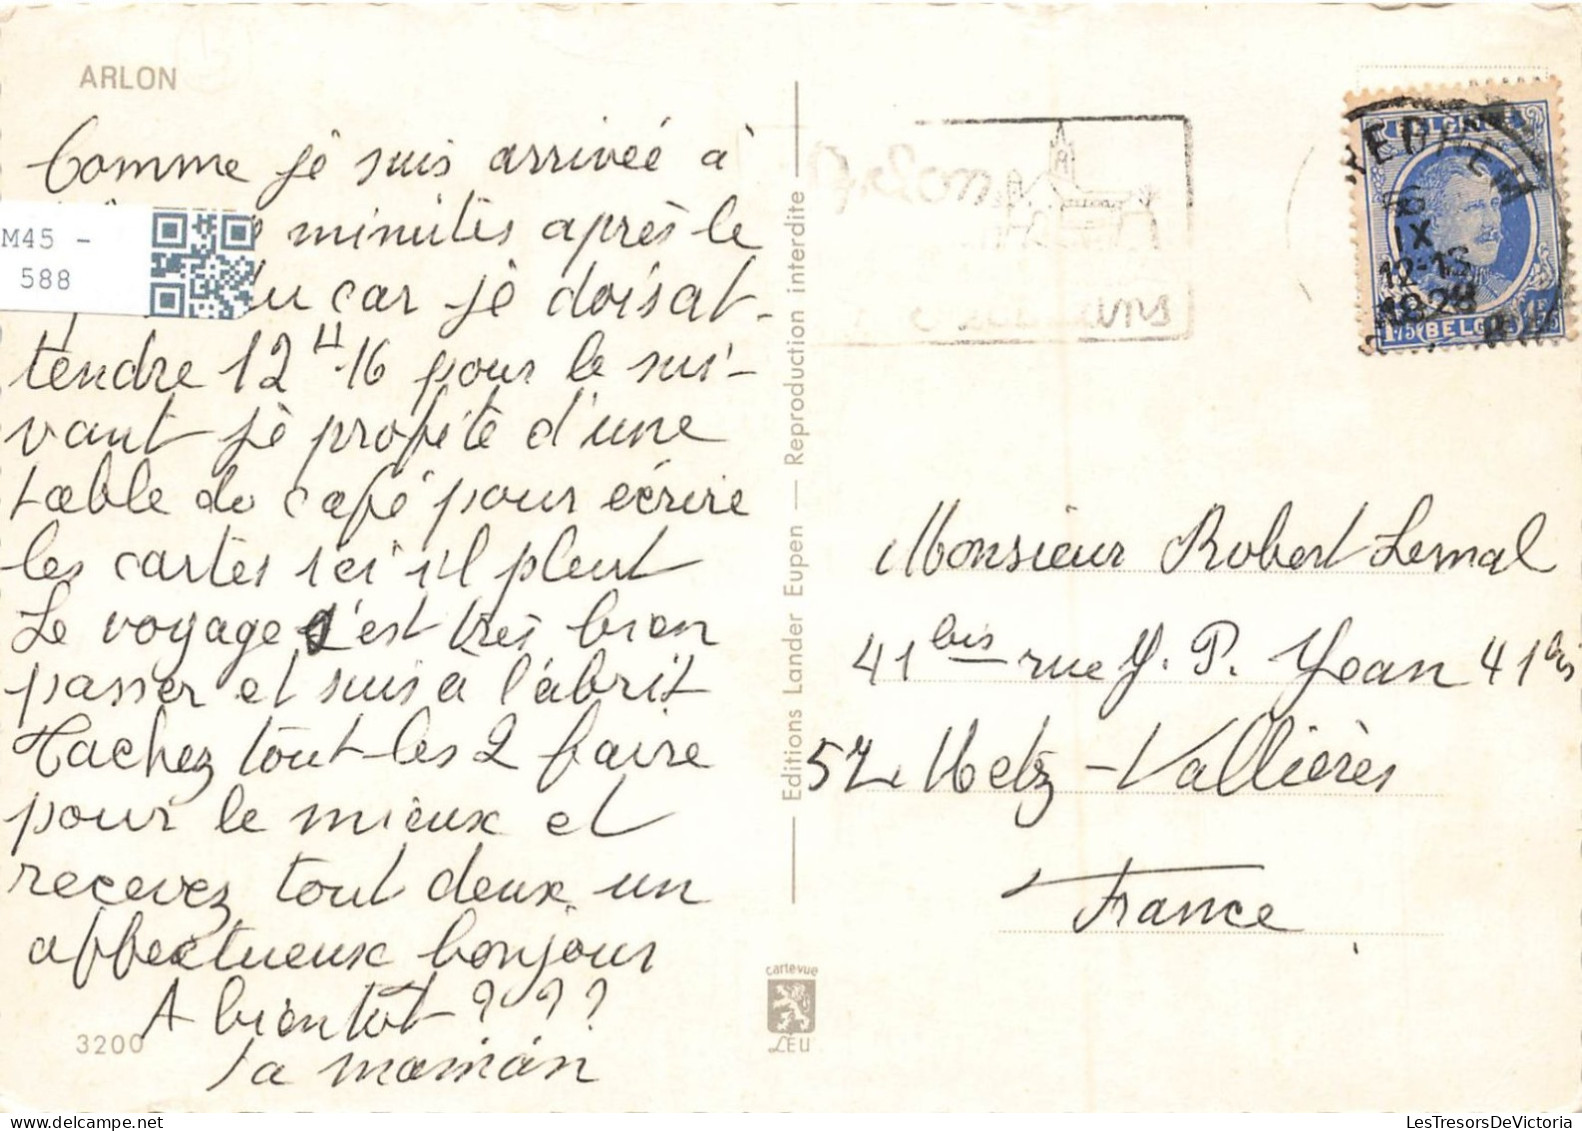 ARLON
Comme je suis arrivée à
minutes après le
du car je dois at-
tendre 12 H 16 pour le sui-
vant je profite d'une
table de café pour écrire
les cartes ici il pleut
Le voyage s'est très bien
passer et suis a l'abrit
Tachez tout les 2 faire
pour le mieux et
recevez tout deux un
affectueux bonjour
A bientôt ? ? ?
ta maman
3200
M45 -
588
Editions Lander Eupen — Reproduction interdite
cartevue
LEU
Arlon
BELGI
IX
12-13
1928
1F75 BELG
Monsieur Robert Lemal
41 bis rue J. P. Jean 41 bis
57 Metz-Vallières
France
LesTresorsDeVictoria